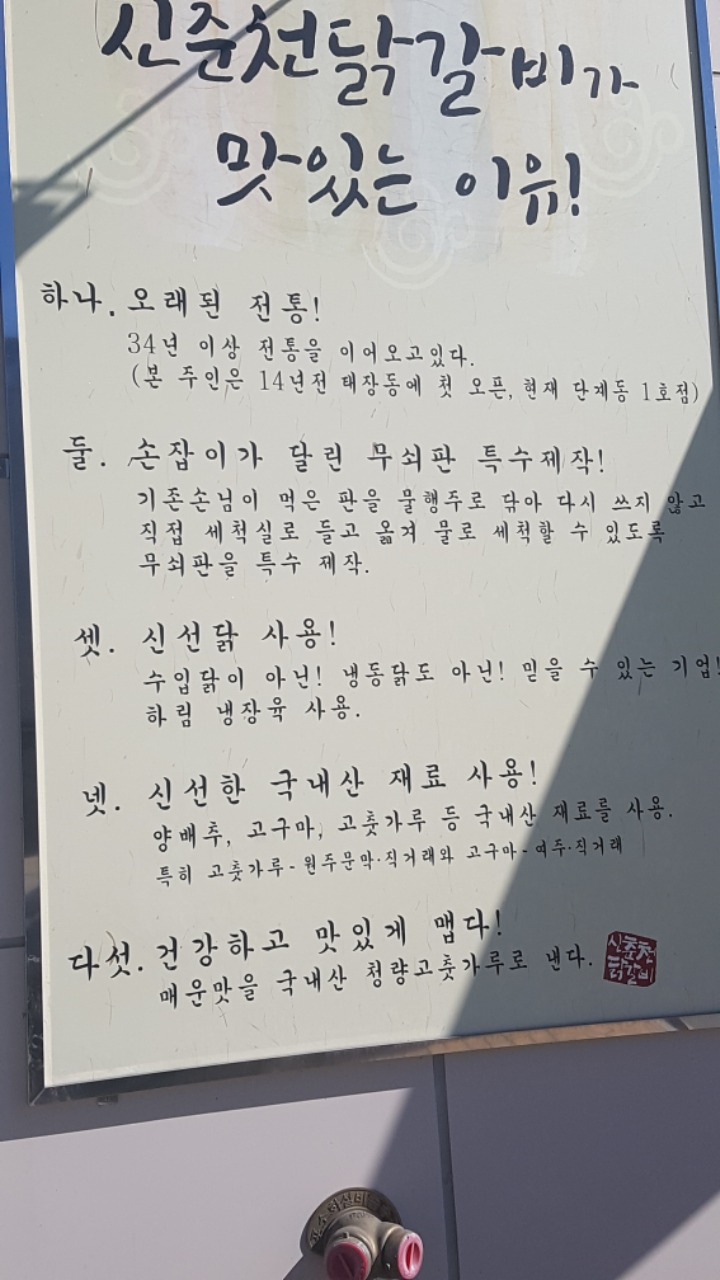 신춘천닭갈비가
맛있는 이유!
하나. 오래된 전통!
34년 이상 전통을 이어오고있다.
(본 주인은 14년전 태장동에 첫 오픈, 현재 단계동 1호점)
둘. 손잡이가 달린 무쇠판 특수제작!
기존손님이 먹은 판을 물행주로 닦아 다시 쓰지 않고
직접 세척실로 들고 옮겨 물로 세척할 수 있도록
무쇠판을 특수 제작.
셋. 신선닭 사용!
수입닭이 아닌! 냉동닭도 아닌! 믿을 수 있는 기업!
하림 냉장육 사용.
넷. 신선한 국내산 재료 사용!
양배추, 고구마, 고춧가루 등 국내산 재료를 사용.
특히 고춧가루-원주문막·직거래와 고구마-여주·직거래
다섯. 건강하고 맛있게 맵다!
매운맛을 국내산 청량고춧가루로 낸다.
신춘천
닭갈비